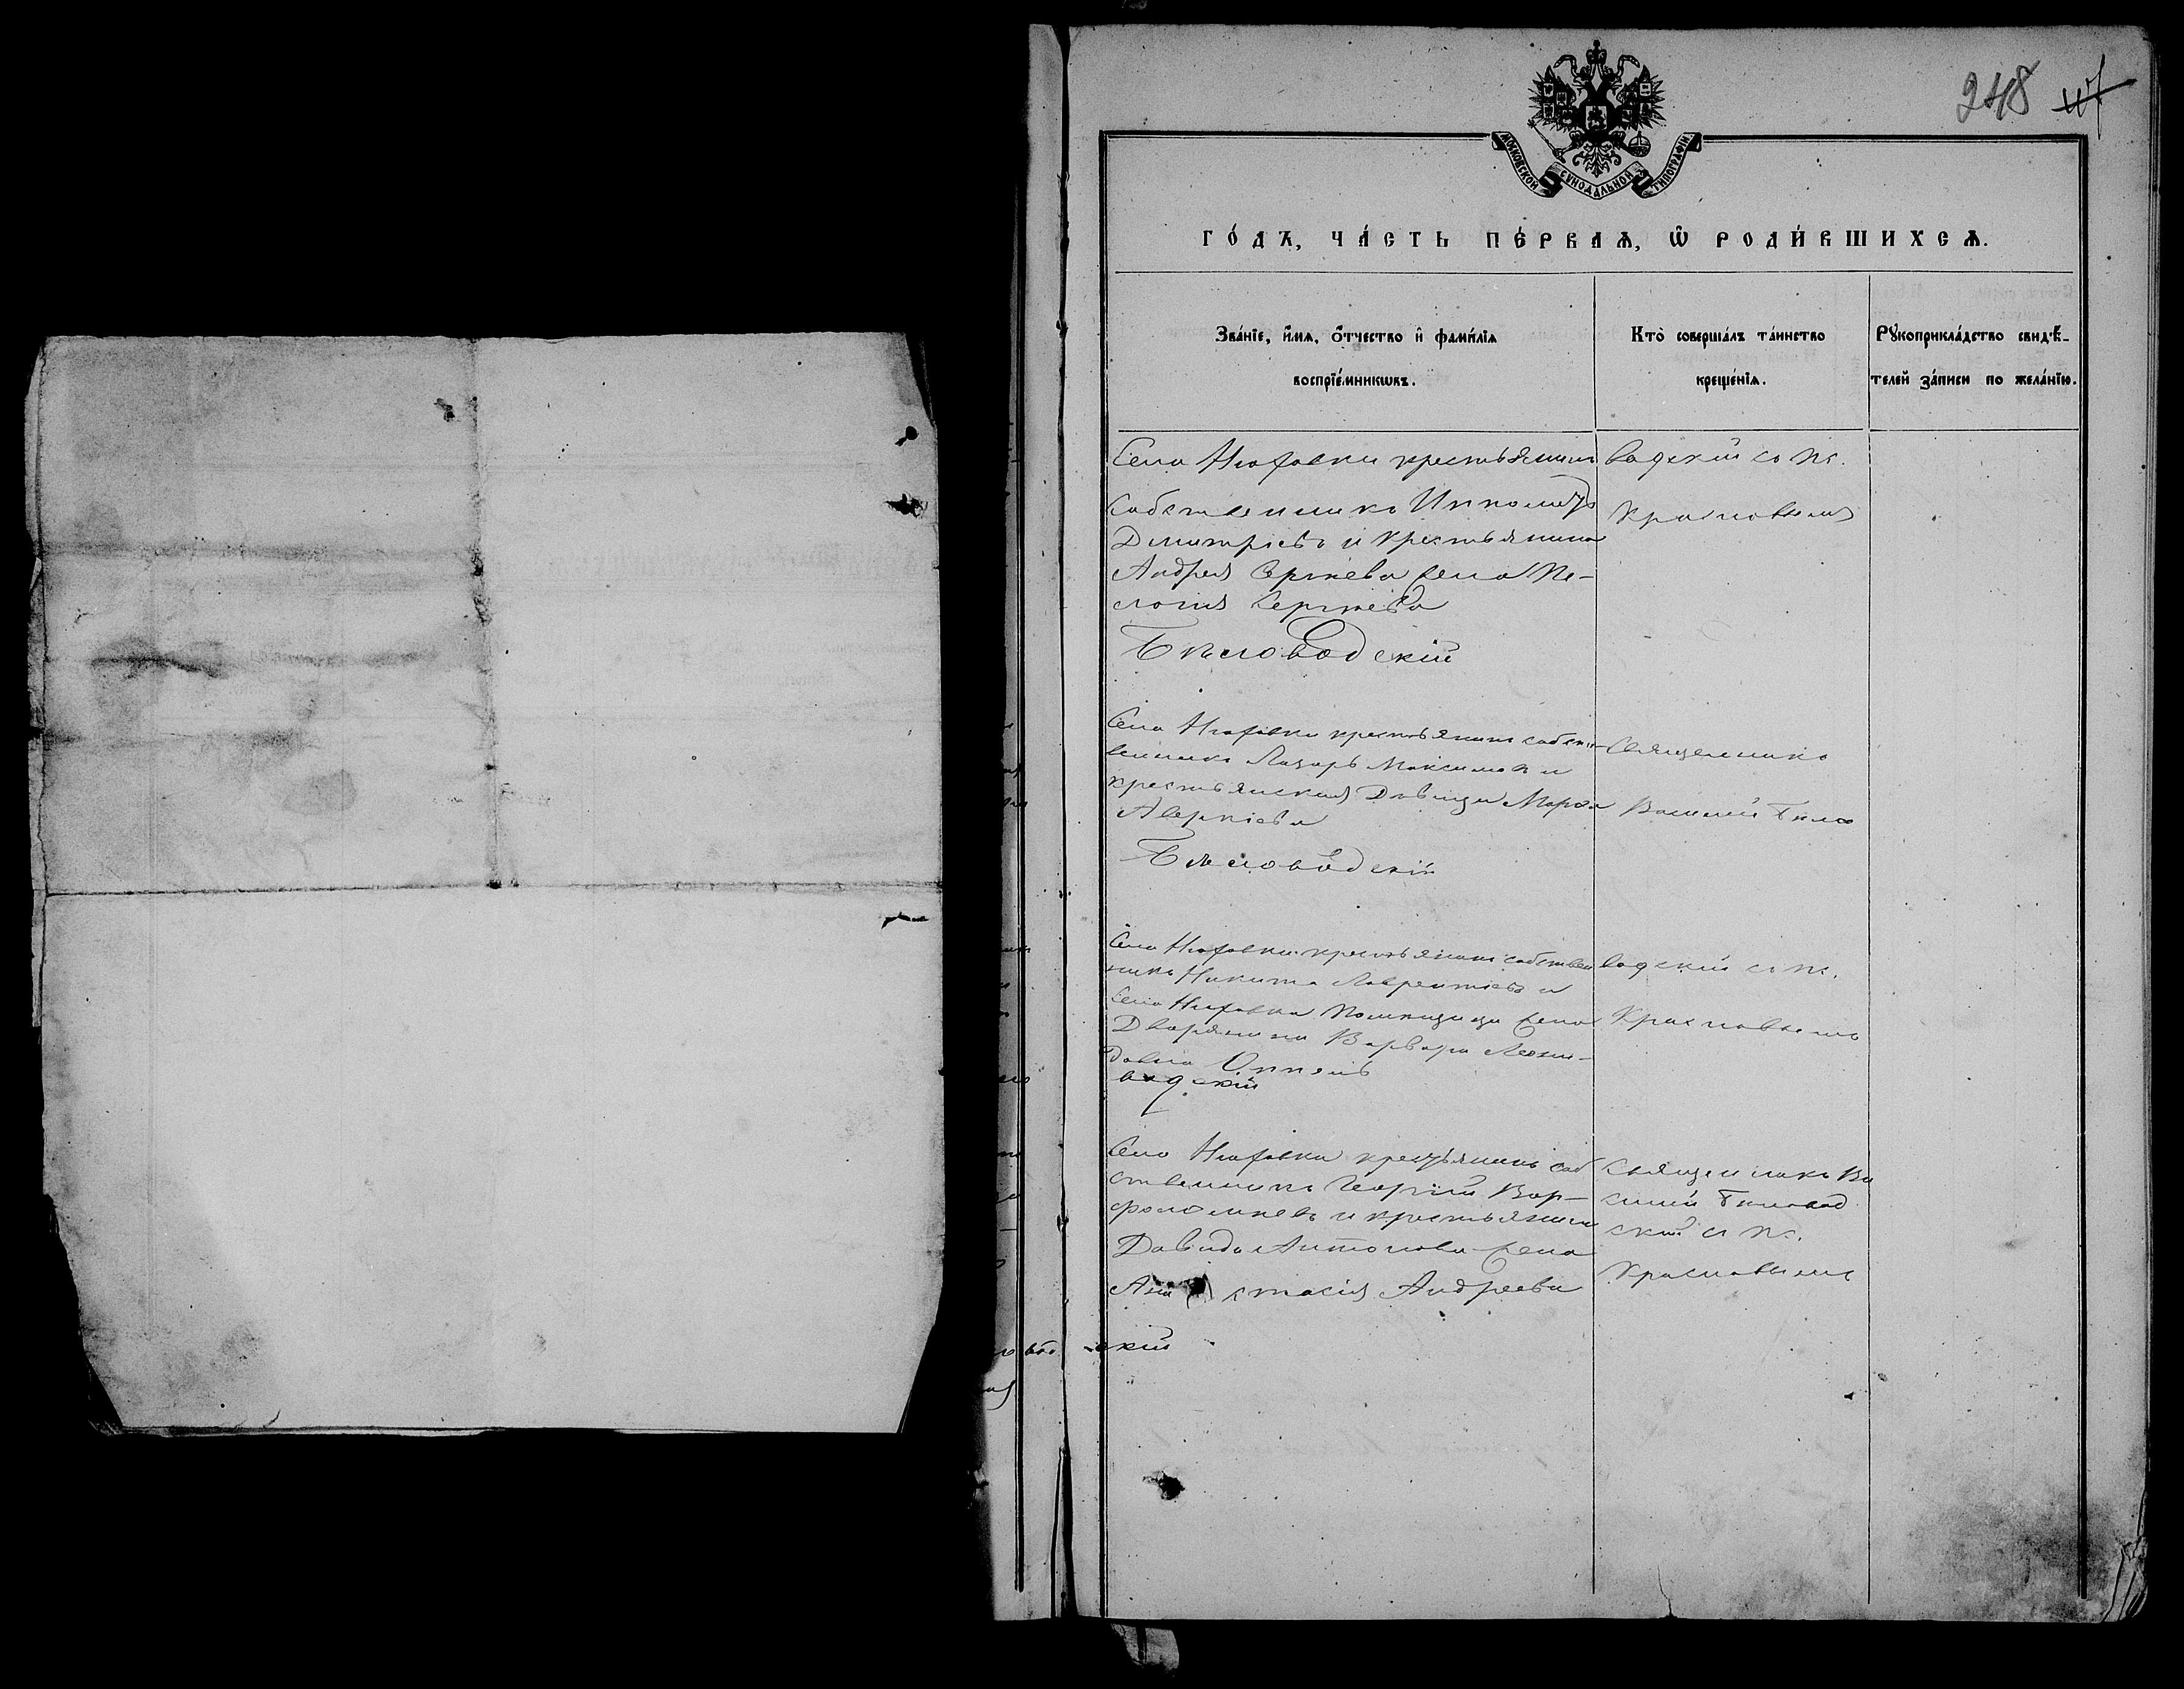 248
МОСКОВСКОЙ СѴНОДАЛЬНОЙ ТИПОГРАФІИ
ГО́ДЪ, ЧА́СТЬ ПЕ́РВАѦ, Ѡ҆ РОДИ́ВШИХСѦ.
Зва́нїе, и҆́мѧ, ѻ҆́тчество и҆ фами́лїѧ
воспрїе́мникѡвъ.
Кто̀ соверша́лъ та́инство
креще́нїѧ.
Рꙋкоприкла́дство свидѣ́-
телей за́писи по жела́нїю.
Села Нюховки крестьянинъ
собственникъ Ипполитъ
Димитріевъ и крестьянина
Андрея Сергѣева жена Пе-
лагия Сергѣева
Бѣловодскій
водскій съ пс.
Красновымъ
Села Нюховки крестьянинъ собст-
венникъ Лазарь Максимовъ и
крестьянская Дѣвица Марѳа
Аверкіева
Бѣловодскій
Священникъ
Василій Бѣло
Села Нюховки крестьянинъ собствен
никъ Никита Лаврентіевъ и
села Нюховки Помѣщица жена
Дворянина Варвара Леони-
довна
водскій
водскій съ пс.
Красновымъ
Села Нюховки крестьянинъ соб
ственникъ Георгій Вар-
фоломѣевъ и крестьянина
Давида Антонова жена
Анастасія Андреева
скій
Священникъ Ва
силій Бѣловод
скій съ пс.
Красновымъ